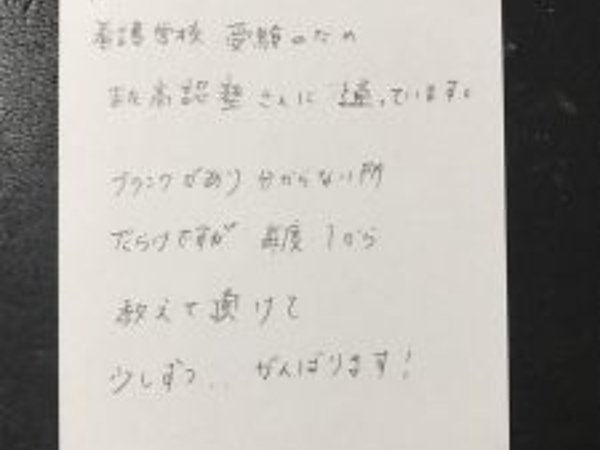 看護学校 受験のため
また高認塾さんに 通っています。
ブランクがあり 分からない所
だらけですが 再度 1から
教えて頂けて
少しずつ.. がんばります!